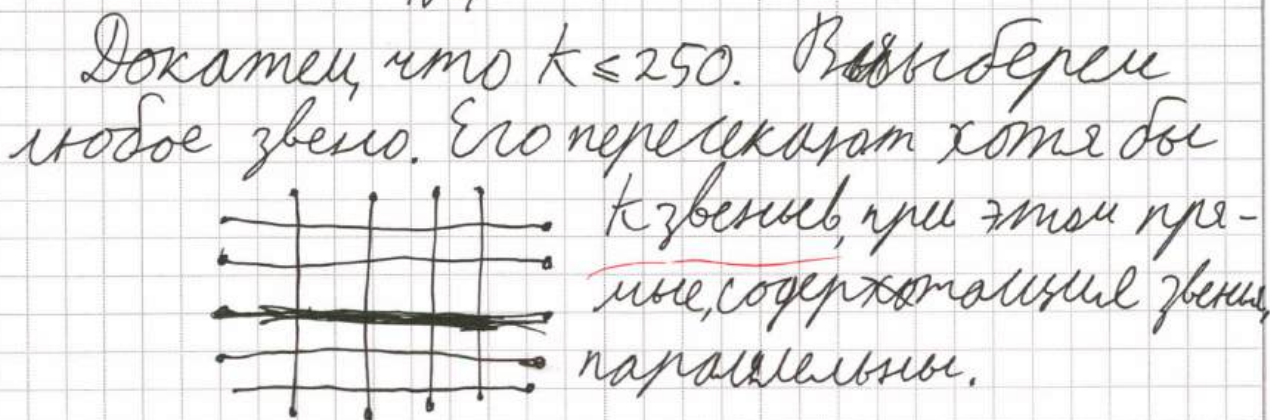 Докажем, что k ≤ 250. Выберем
любое звено. Его пересекают хотя бы
k звеньев, при этом пря-
мые, содержащие звенья,
параллельны.